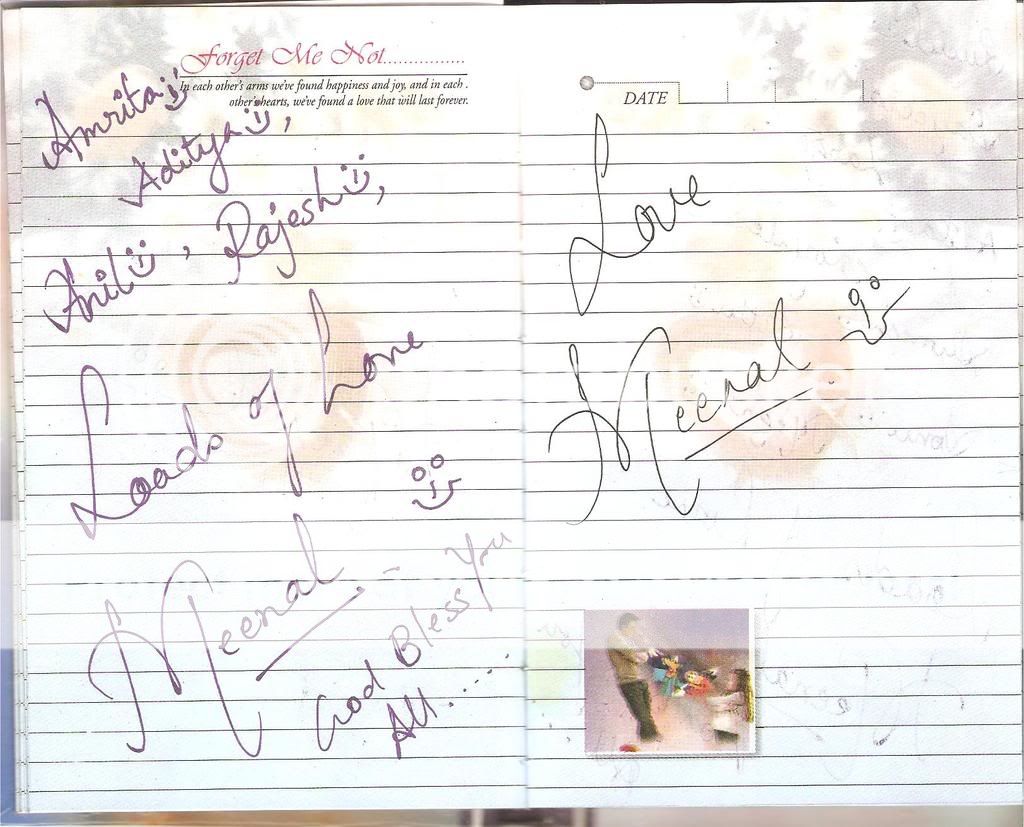 Forget Me Not................
In each other's arms we've found happiness and joy, and in each .
other's hearts, we've found a love that will last forever.
Amrita
Aditya ,
Anil , Rajesh ,
Loads of Love
Meenal
God Bless You
All....
DATE
Love
Meenal